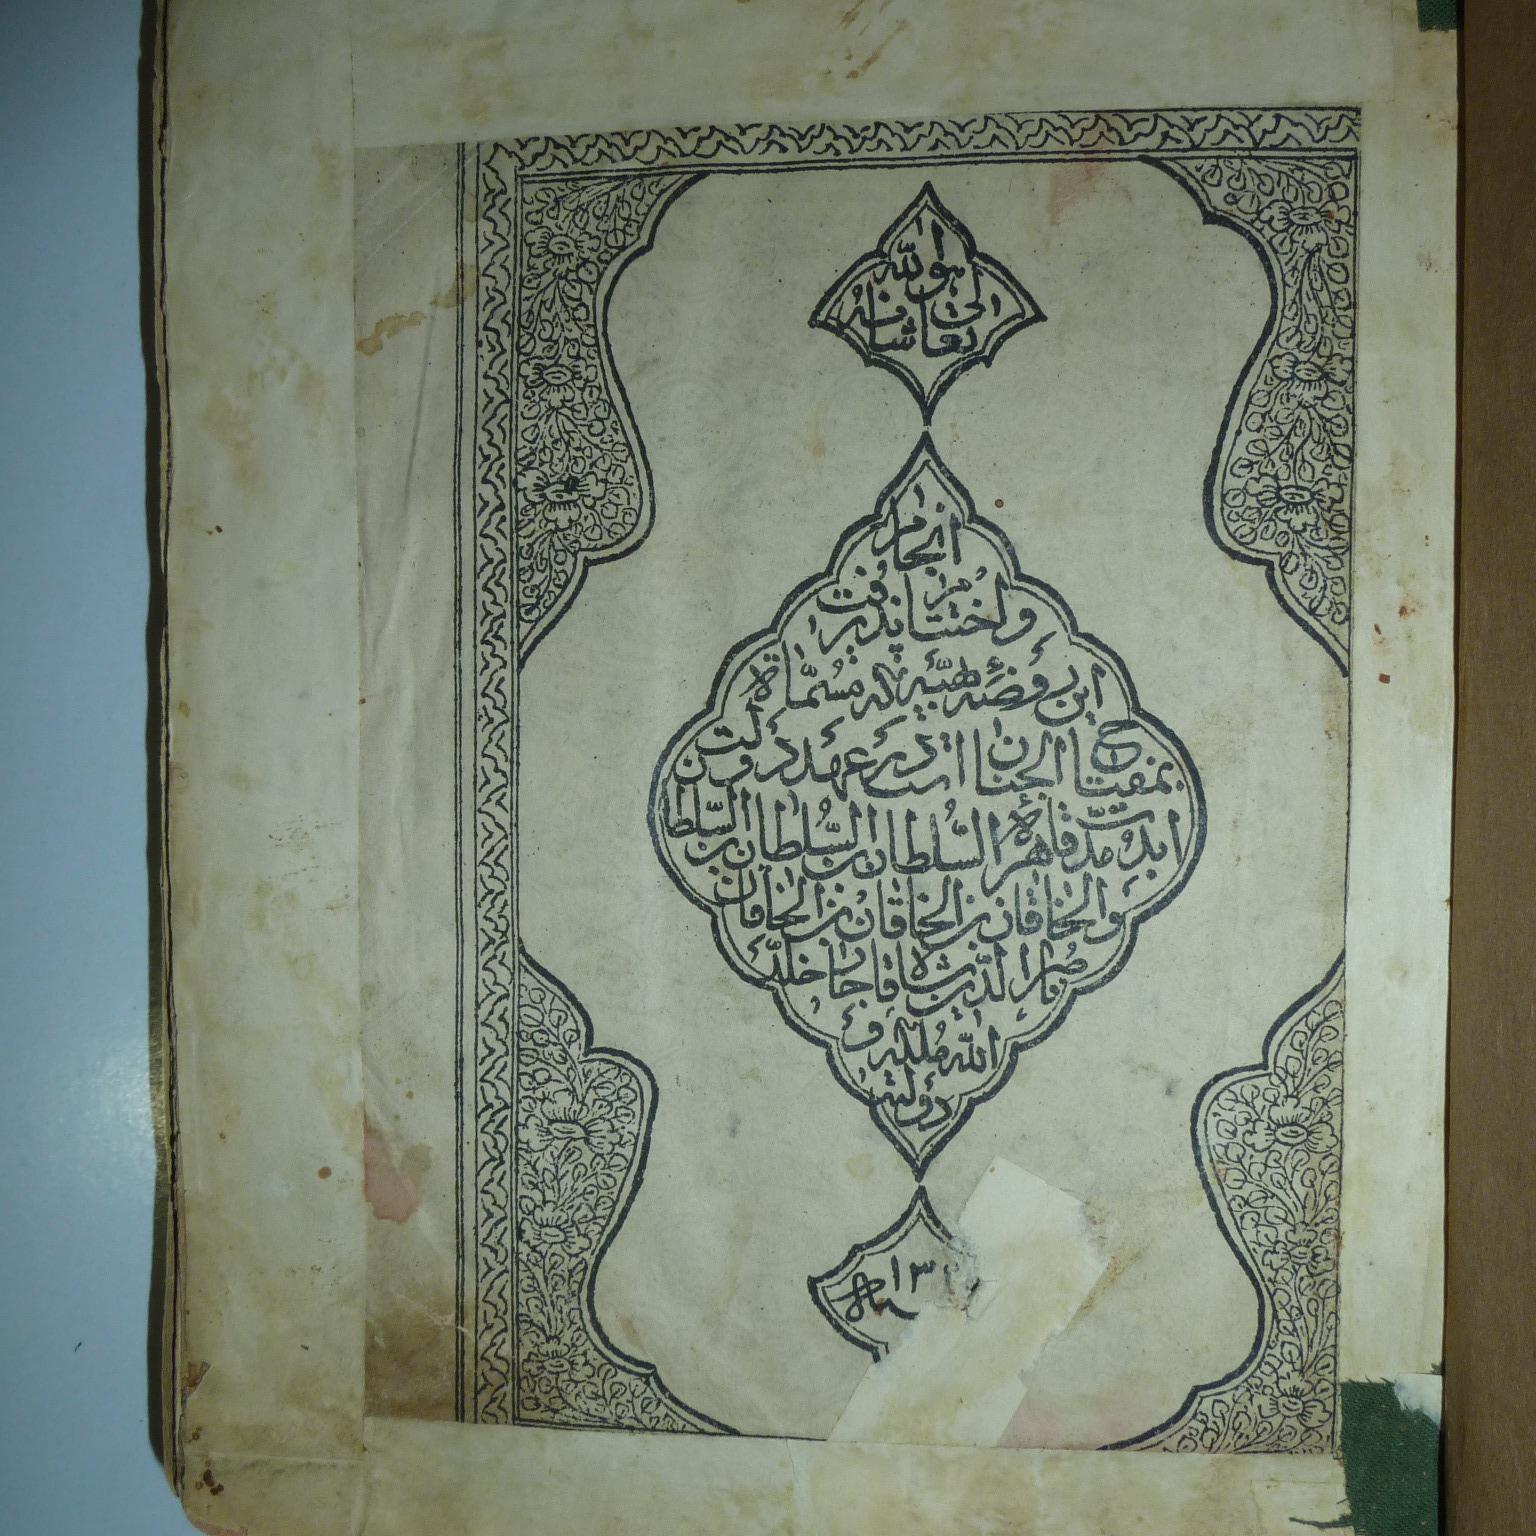 هو الله
تعالی شانه
انجام
و اختتام پذیرفت
این روضه بهیّه که مسمّاة
بمفتاح الجنان است در عهد دولت
ابد مدّت قاهره السّلطان بن السّلطان بن السّلطان
و الخاقان بن الخاقان بن الخاقان
ناصرالدّین شاه قاجار خلّد
الله ملکه و
دولته
۱۳